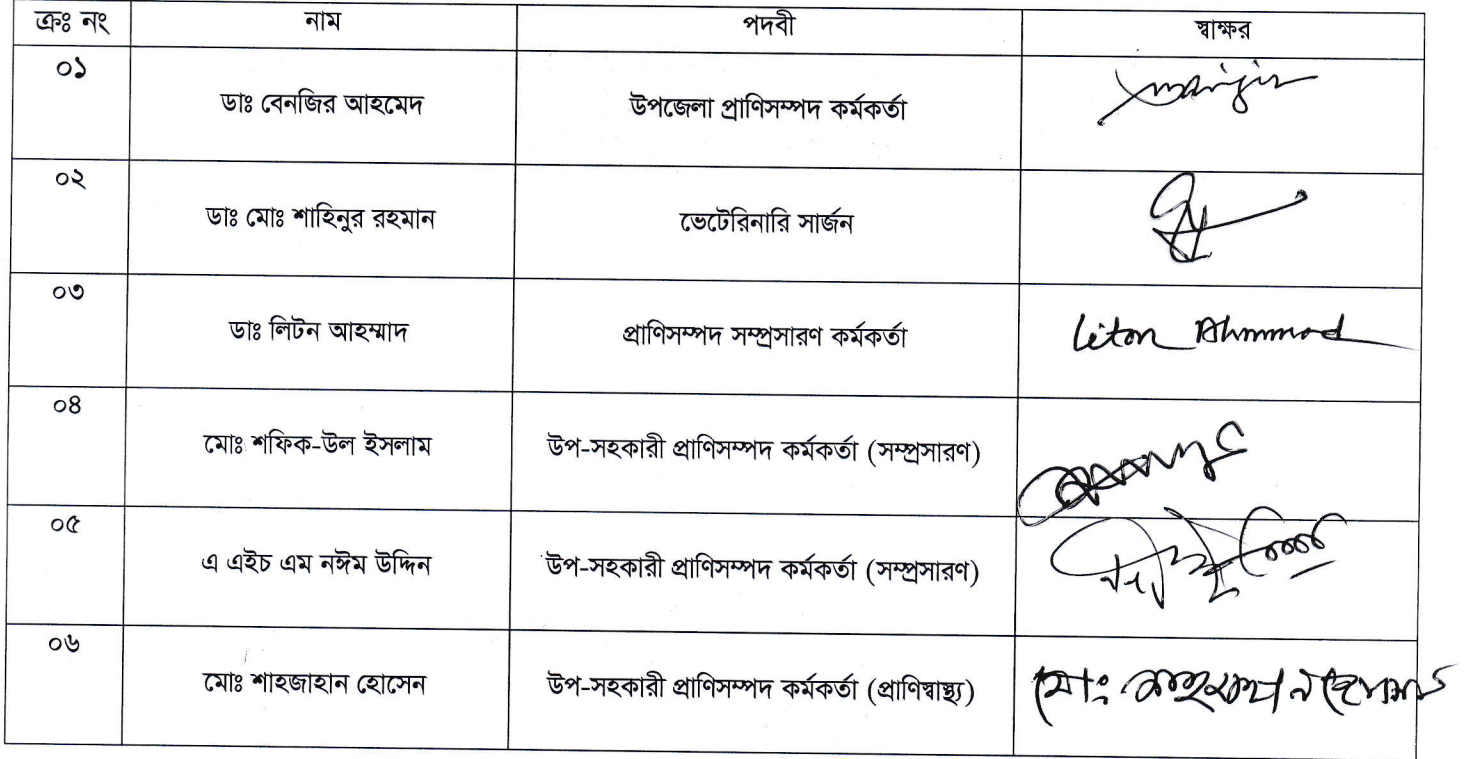 ক্রঃ নং নাম পদবী স্বাক্ষর
০১ ডাঃ বেনজির আহমেদ উপজেলা প্রাণিসম্পদ কর্মকর্তা
০২ ডাঃ মোঃ শাহিনুর রহমান ভেটেরিনারি সার্জন
০৩ ডাঃ লিটন আহম্মাদ প্রাণিসম্পদ সম্প্রসারণ কর্মকর্তা Liton Ahmmad
০৪ মোঃ শফিক-উল ইসলাম উপ-সহকারী প্রাণিসম্পদ কর্মকর্তা (সম্প্রসারণ)
০৫ এ এইচ এম নঈম উদ্দিন উপ-সহকারী প্রাণিসম্পদ কর্মকর্তা (সম্প্রসারণ)
০৬ মোঃ শাহজাহান হোসেন উপ-সহকারী প্রাণিসম্পদ কর্মকর্তা (প্রাণিস্বাস্থ্য) মোঃ শাহজাহান হোসেন